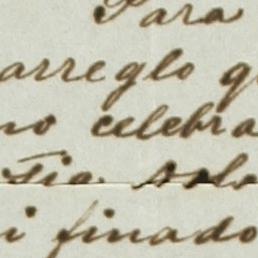 Para
arreglo q
no celebra
Tia solo
i finado